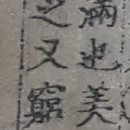 滿也美
之又窮